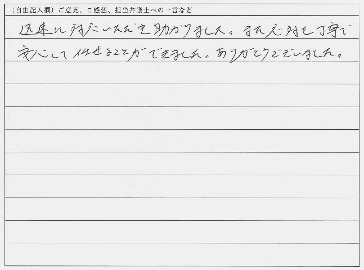 (自由記入欄) ご意見、ご感想、担当弁護士への一言など
迅速に対応いただき助かりました。また応対も丁寧で
安心して任せることができました。ありがとうございました。